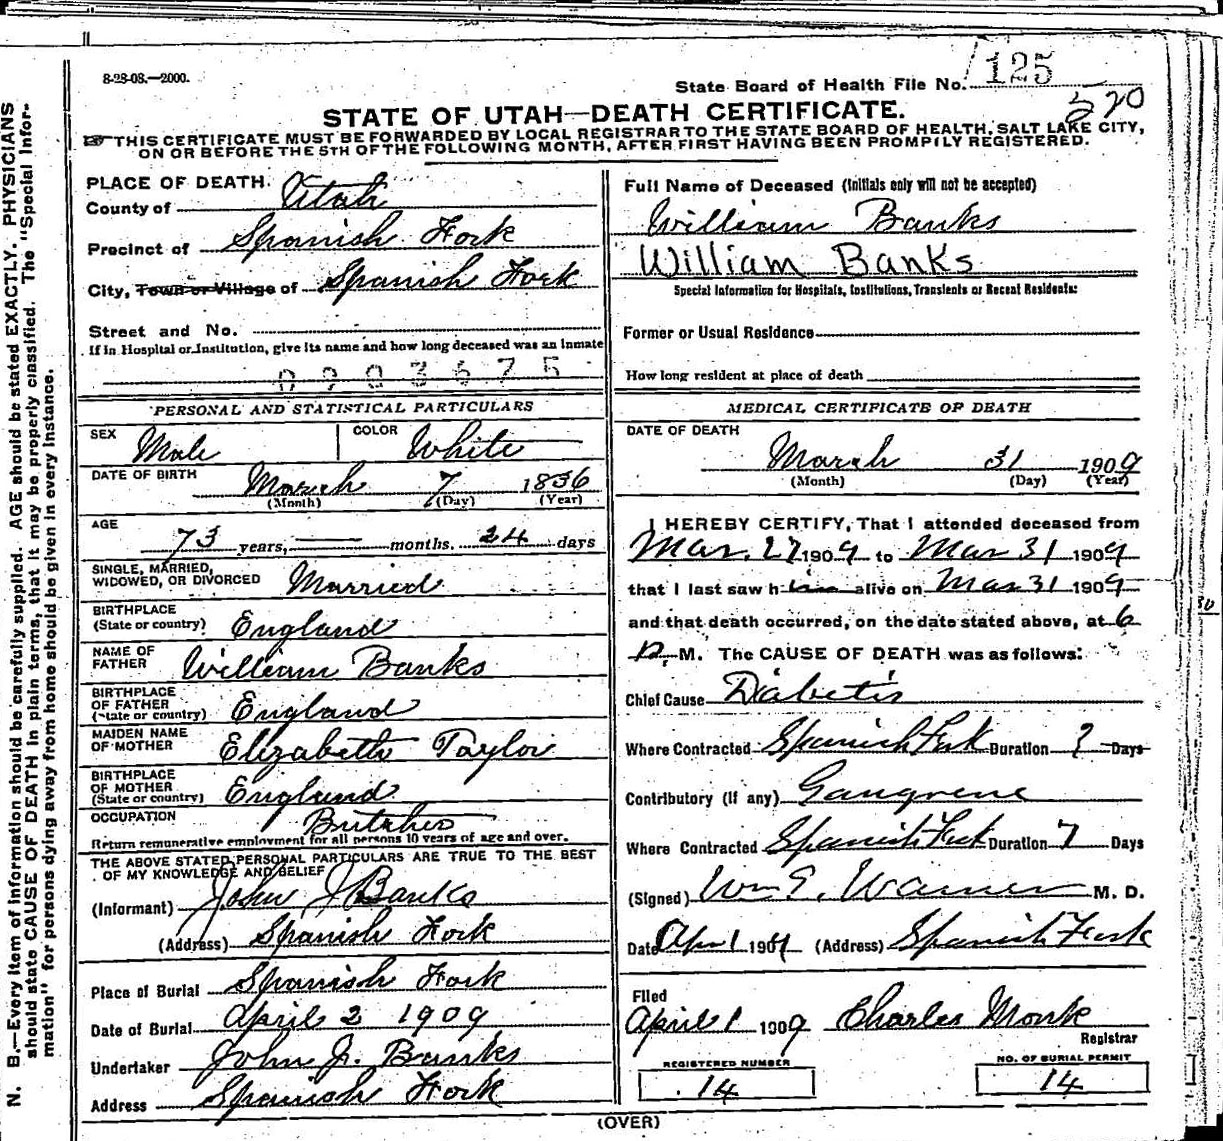 8-28-08.—2000.
State Board of Health File No. 125
520
STATE OF UTAH—DEATH CERTIFICATE.
THIS CERTIFICATE MUST BE FORWARDED BY LOCAL REGISTRAR TO THE STATE BOARD OF HEALTH, SALT LAKE CITY,
ON OR BEFORE THE 5TH OF THE FOLLOWING MONTH, AFTER FIRST HAVING BEEN PROMPILY REGISTERED.
PLACE OF DEATH.
County of Utah
Precinct of Spanish Fork
City, Town or Village of Spanish Fork
Street and No.
If in Hospital or Institution, give its name and how long deceased was an inmate
0203675
PERSONAL AND STATISTICAL PARTICULARS
SEX Male COLOR White
DATE OF BIRTH March 7 1836
(Month) (Day) (Year)
AGE
73 years, months. 24 days
SINGLE, MARRIED,
WIDOWED, OR DIVORCED Married
BIRTHPLACE
(State or country) England
NAME OF
FATHER William Banks
BIRTHPLACE
OF FATHER
(State or country) England
MAIDEN NAME
OF MOTHER Elizabeth Taylor
BIRTHPLACE
OF MOTHER
(State or country) England
OCCUPATION Butcher
Return remunerative employment for all persons 10 years of age and over.
THE ABOVE STATED PERSONAL PARTICULARS ARE TRUE TO THE BEST
OF MY KNOWLEDGE AND BELIEF
(Informant) John J Banks
(Address) Spanish Fork
Place of Burial Spanish Fork
Date of Burial April 2 1909
Undertaker John J. Banks
Address Spanish Fork
Full Name of Deceased (Initials only will not be accepted)
William Banks
William Banks
Special Information for Hospitals, Institutions, Transients or Recent Residents:
Former or Usual Residence
How long resident at place of death
MEDICAL CERTIFICATE OF DEATH
DATE OF DEATH
March 31 1909
(Month) (Day) (Year)
I HEREBY CERTIFY, That I attended deceased from
Mar. 27 1909 to Mar 31 1909
that I last saw him alive on Mar 31 1909
and that death occurred, on the date stated above, at 6
P. M. The CAUSE OF DEATH was as follows:
Chief Cause Diabetis
Where Contracted Spanish Fork Duration ? Days
Contributory (if any) Gangrene
Where Contracted Spanish Fork Duration 7 Days
(Signed) Wm E. Warner M. D.
Date Apr 1 1909 (Address) Spanish Fork
Filed
April 1 1909 Charles Monk
Registrar
REGISTERED NUMBER
14
NO. OF BURIAL PERMIT
14
(OVER)
N. B.—Every item of information should be carefully supplied. AGE should be stated EXACTLY. PHYSICIANS
should state CAUSE OF DEATH in plain terms, that it may be properly classified. The "Special Infor-
mation" for persons dying away from home should be given in every instance.